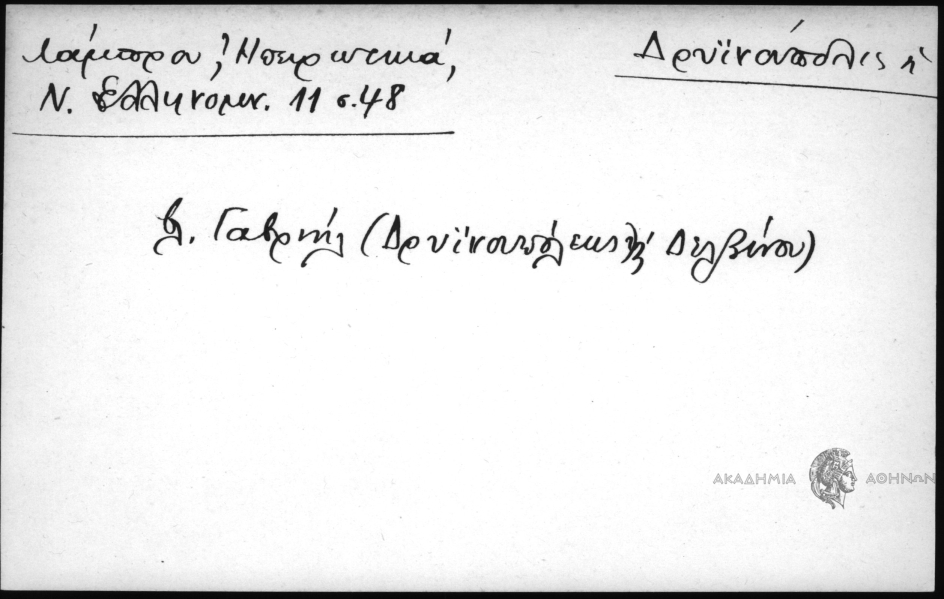 Λάμπρου, Ἠπειρωτικά,
Ν. Ἑλληνομν. 11 σ.48
Δρυϊνούπολις ἡ
Γαβριήλ (Δρυϊνουπόλεως ἢ Δελβίνου)
ΑΚΑΔΗΜΙΑ ΑΘΗΝΩΝ